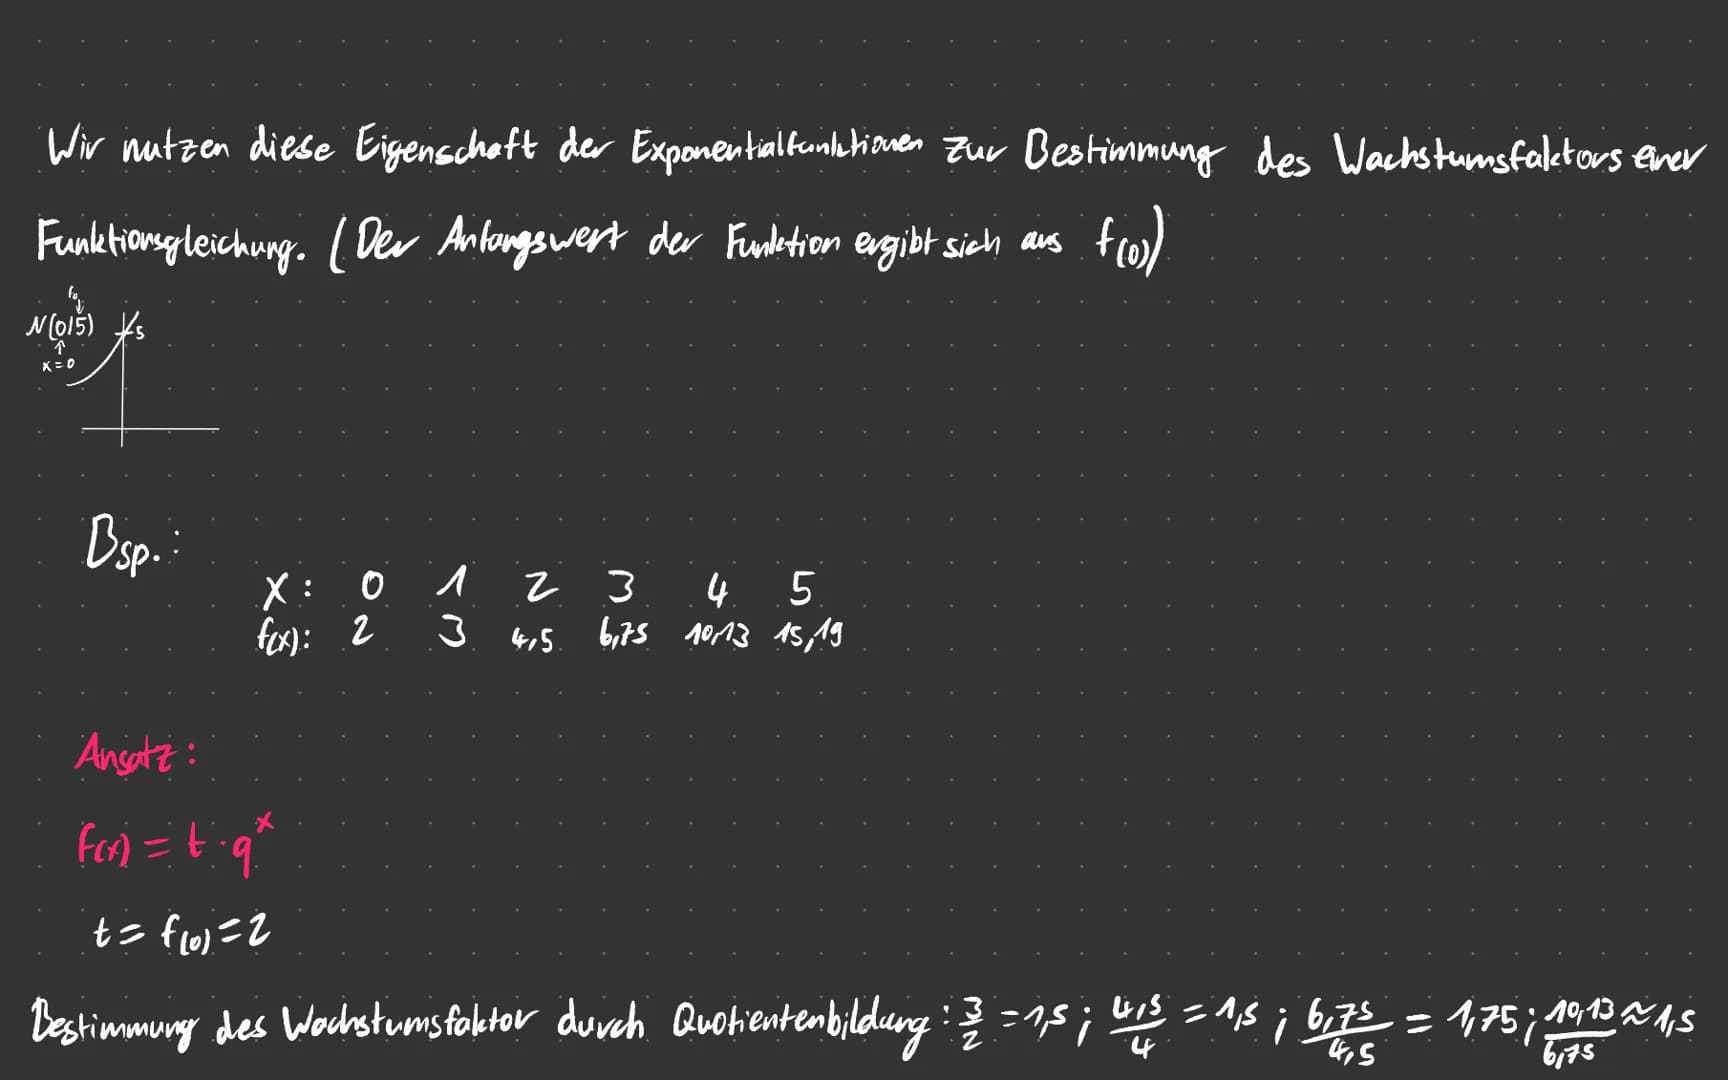 Wir nutzen diese Eigenschaft der Exponentialfunktionen zur Bestimmung des Wachstumsfaktors einer
Funktionsgleichung. (Der Anfangswert der Funktion ergibt sich aus f(0))
f₀
N(0/5) 5
x=0
Bsp.:
x: 0 1 2 3 4 5
f(x): 2 3 4,5 6,75 10,13 15,19
Ansatz:
f(x) = t · q^x
t = f(0) = 2
Bestimmung des Wachstumsfaktor durch Quotientenbildung: 3/2 = 1,5 ; 4,5/4 = 1,5 ; 6,75/4,5 = 1,75 ; 10,13/6,75 ≈ 1,5